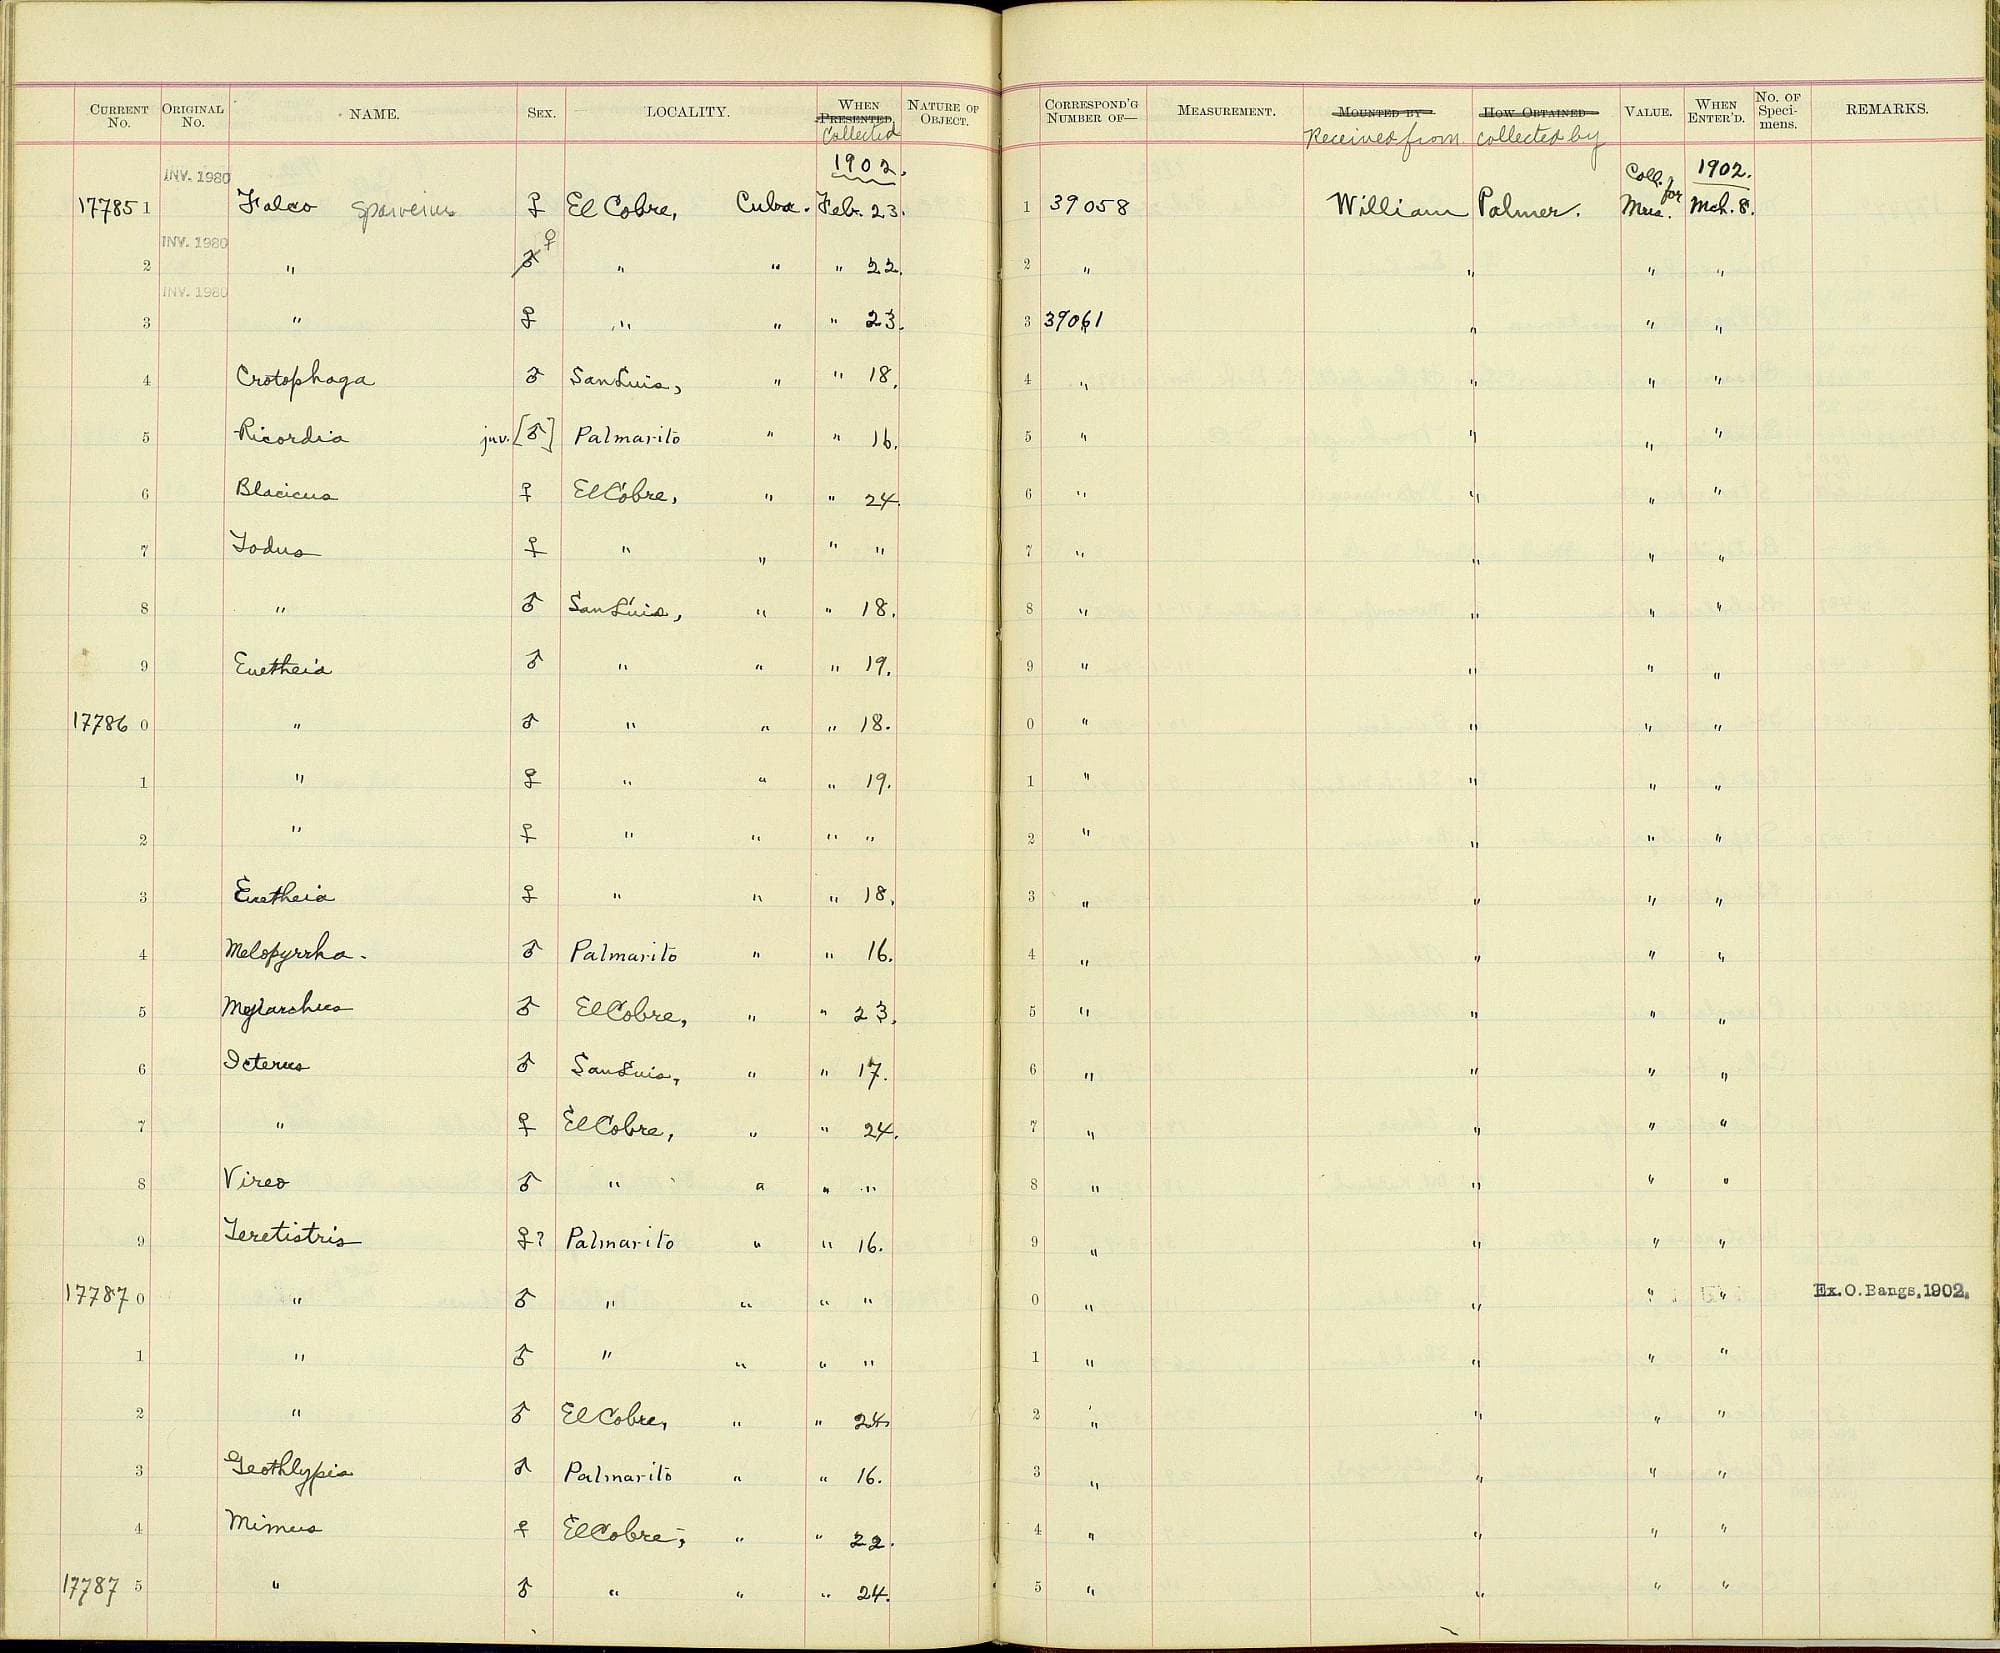 CURRENT No. ORIGINAL No. NAME. SEX. LOCALITY. WHEN PRESENTED. Collected NATURE OF OBJECT. CORRESPOND'G NUMBER OF— MEASUREMENT. MOUNTED BY Received from HOW OBTAINED collected by VALUE. WHEN ENTER'D. No. OF Specimens. REMARKS.
1902. 1902.
INV. 1980
177851 Falco sparverius ♀ El Cobre, Cuba. Feb. 23. 1 39058 William Palmer. Coll. for Mus. Mch. 8.
INV. 1980
2 " ♂ ♀ " " " 22. 2 " " " "
INV. 1980
3 " ♀ " " " 23. 3 39061 " " "
4 Crotophaga ♂ San Luis, " " 18. 4 " " " "
5 Ricordia juv. [♂] Palmarito " " 16. 5 " " " "
6 Blacicus ♀ El Cobre, " " 24. 6 " " " "
7 Todus ♀ " " " " 7 " " " "
8 " ♂ San Luis, " " 18. 8 " " " "
9 Euetheia ♂ " " " 19. 9 " " " "
17786 0 " ♂ " " " 18. 0 " " " "
1 " ♀ " " " 19. 1 " " " "
2 " ♀ " " " " 2 " " " "
3 Euetheia ♀ " " " 18. 3 " " " "
4 Melopyrrha. ♂ Palmarito " " 16. 4 " " " "
5 Myiarchus ♂ El Cobre, " " 23. 5 " " " "
6 Icterus ♂ San Luis, " " 17. 6 " " " "
7 " ♀ El Cobre, " " 24. 7 " " " "
8 Vireo ♂ " " " " 8 " " " "
9 Teretistris ♀? Palmarito " " 16. 9 " " " "
17787 0 " ♂ " " " " 0 " " " " Ex. O. Bangs, 1902.
1 " ♂ " " " " 1 " " " "
2 " ♂ El Cobre, " " 24. 2 " " " "
3 Geothlypis ♂ Palmarito " " 16. 3 " " " "
4 Mimus ♀ El Cobre, " " 22. 4 " " " "
17787 5 " ♂ " " " 24. 5 " " " "